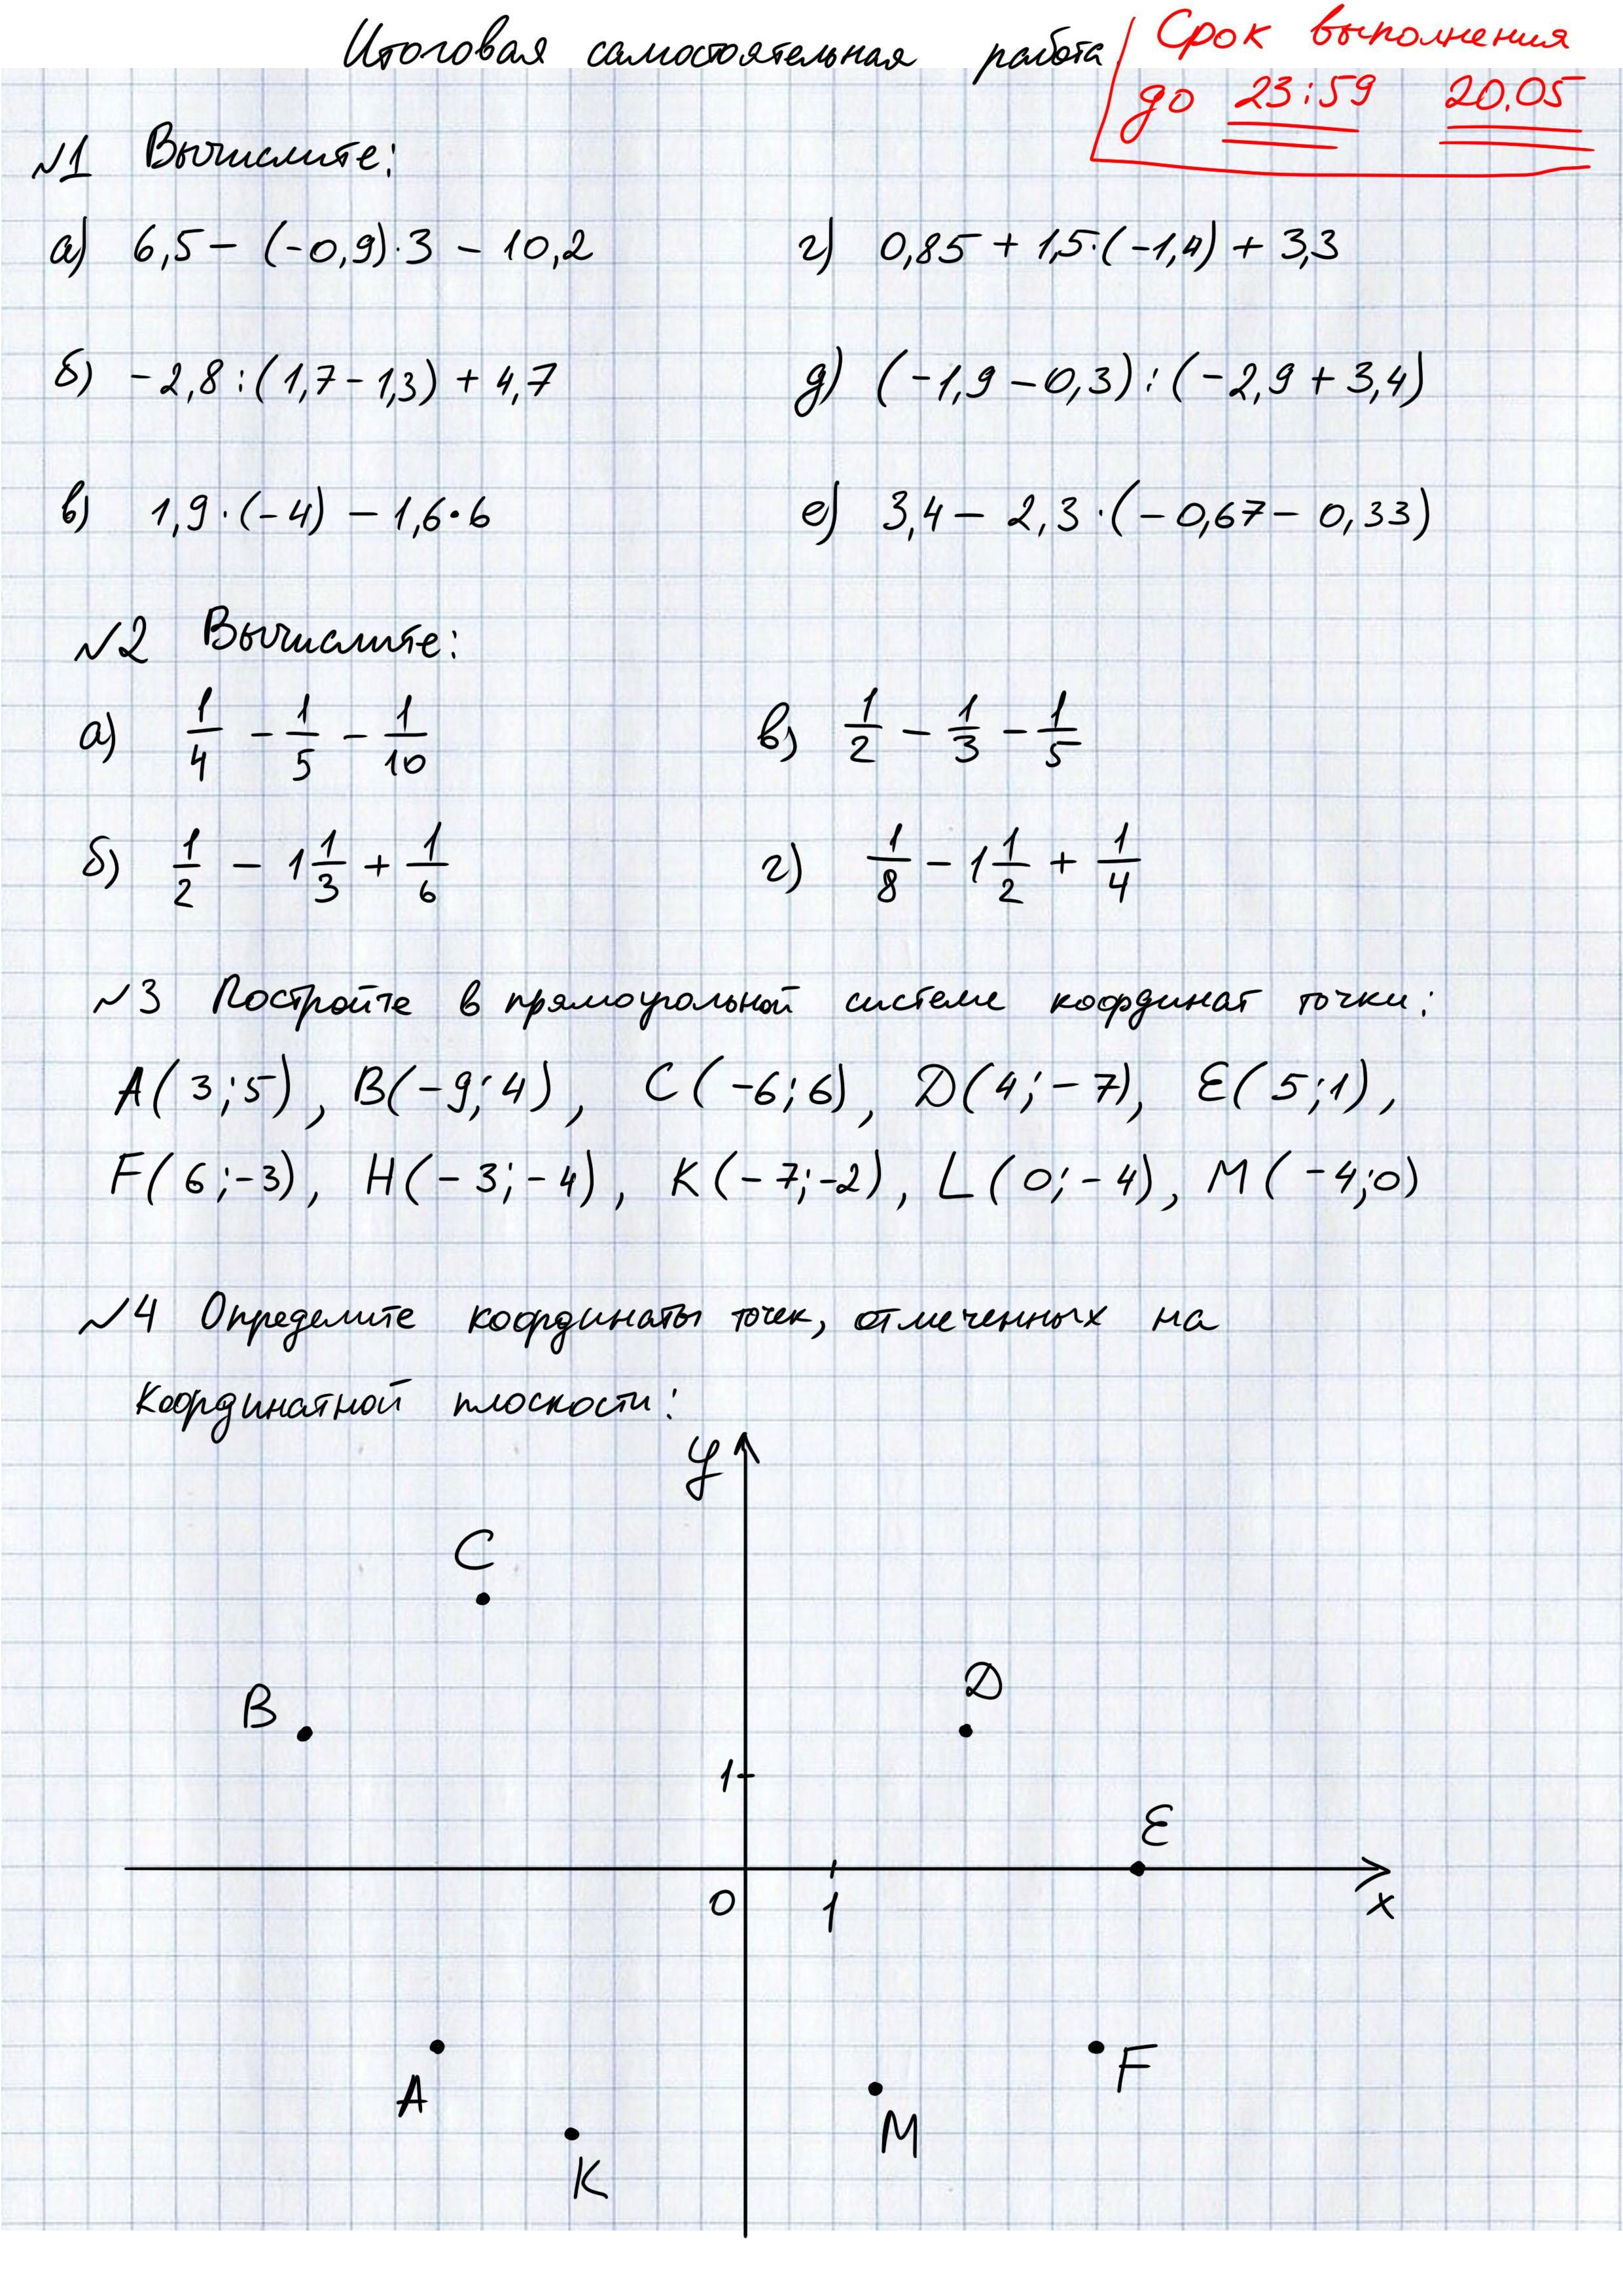 Итоговая самостоятельная работа
Срок выполнения
до 23:59 20.05
№1 Вычислите:
а) 6,5 - (-0,9)·3 - 10,2
г) 0,85 + 1,5·(-1,4) + 3,3
б) -2,8 : (1,7 - 1,3) + 4,7
д) (-1,9 - 0,3) : (-2,9 + 3,4)
в) 1,9·(-4) - 1,6·6
е) 3,4 - 2,3·(-0,67 - 0,33)
№2 Вычислите:
а) 1/4 - 1/5 - 1/10
в) 1/2 - 1/3 - 1/5
б) 1/2 - 1 1/3 + 1/6
г) 1/8 - 1 1/2 + 1/4
№3 Постройте в прямоугольной системе координат точки:
A(3;5), B(-9;4), C(-6;6), D(4;-7), E(5;1),
F(6;-3), H(-3;-4), K(-7;-2), L(0;-4), M(-4;0)
№4 Определите координаты точек, отмеченных на
координатной плоскости:
y
C
D
B
1
E
0
1
x
A
F
M
K